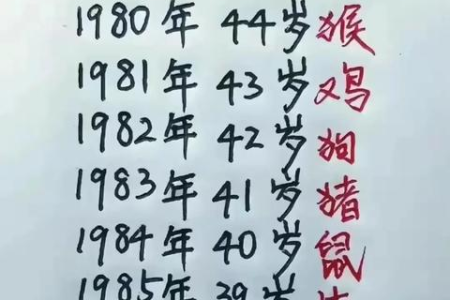 1980年 44岁猴
1981年 43岁鸡
1982年 42岁狗
1983年 41岁猪
1984年 40岁鼠
1985年 39岁